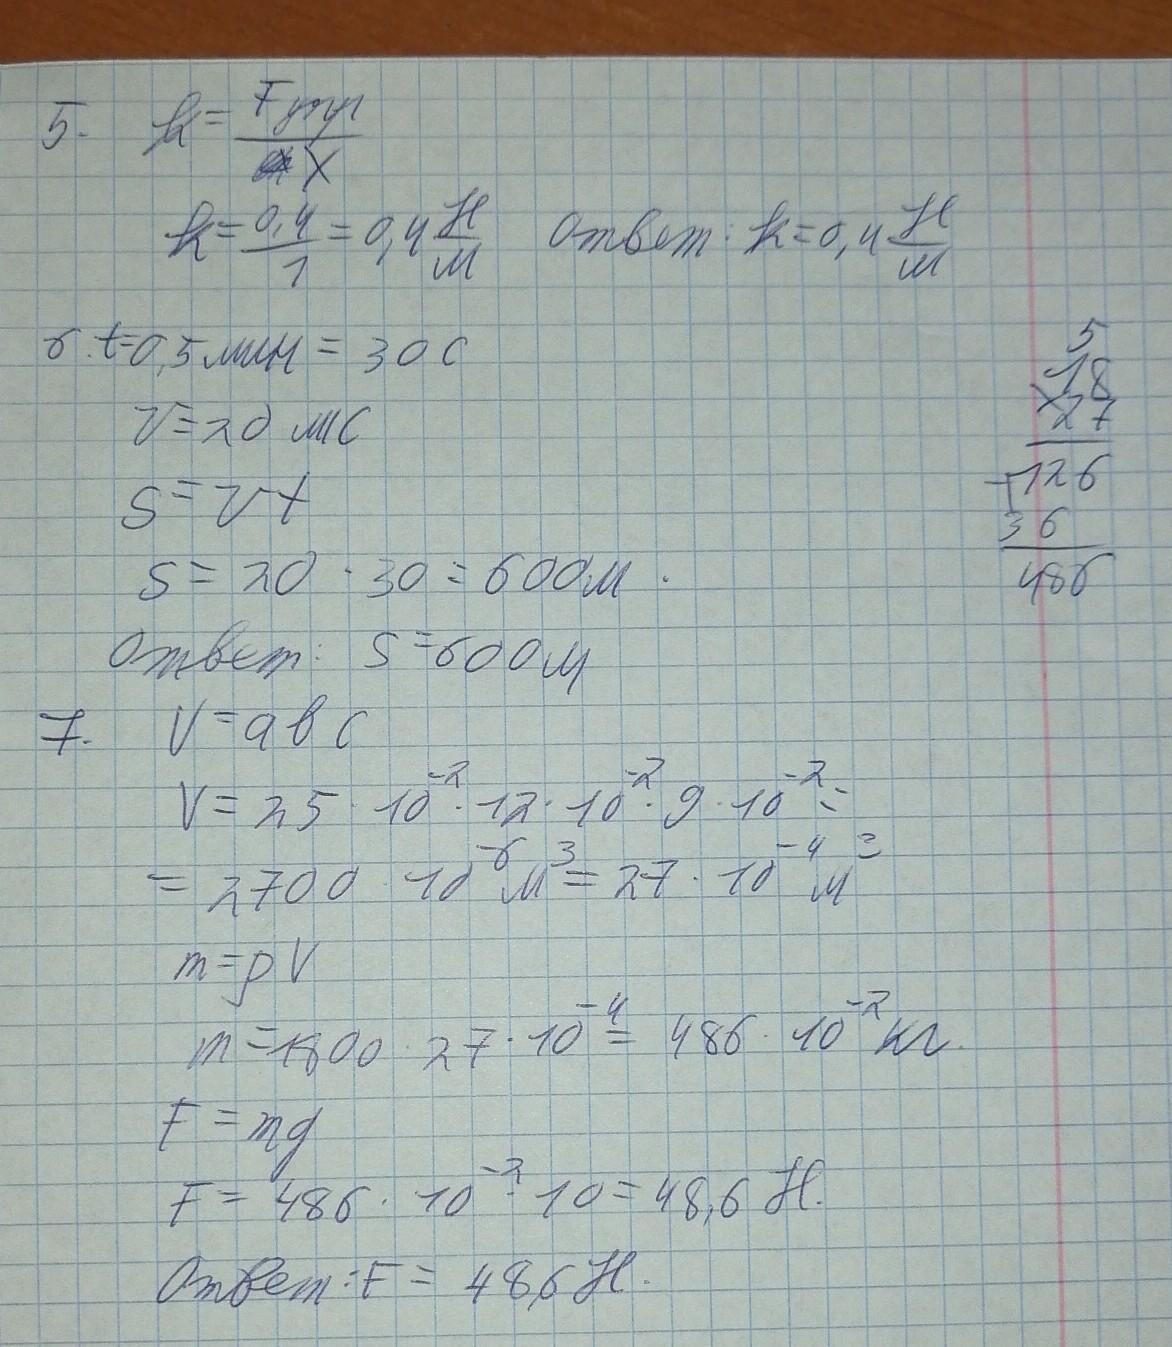 5. k = Fупр / X
k = 0,4 / 1 = 0,4 Н/м Ответ: k = 0,4 Н/м
6. t = 0,5 мин = 30 с
V = 20 мс
S = Vt
S = 20 · 30 = 600 м.
Ответ: S = 600 м
7. V = abc
V = 25 · 10⁻² · 12 · 10⁻² · 9 · 10⁻² =
= 2700 · 10⁻⁶ м³ = 27 · 10⁻⁴ м³
m = ρV
m = 1800 · 27 · 10⁻⁴ = 486 · 10⁻² кг.
F = mg
F = 486 · 10⁻² · 10 = 48,6 Н.
Ответ: F = 48,6 Н.
5
× 18
27
+ 126
36
486